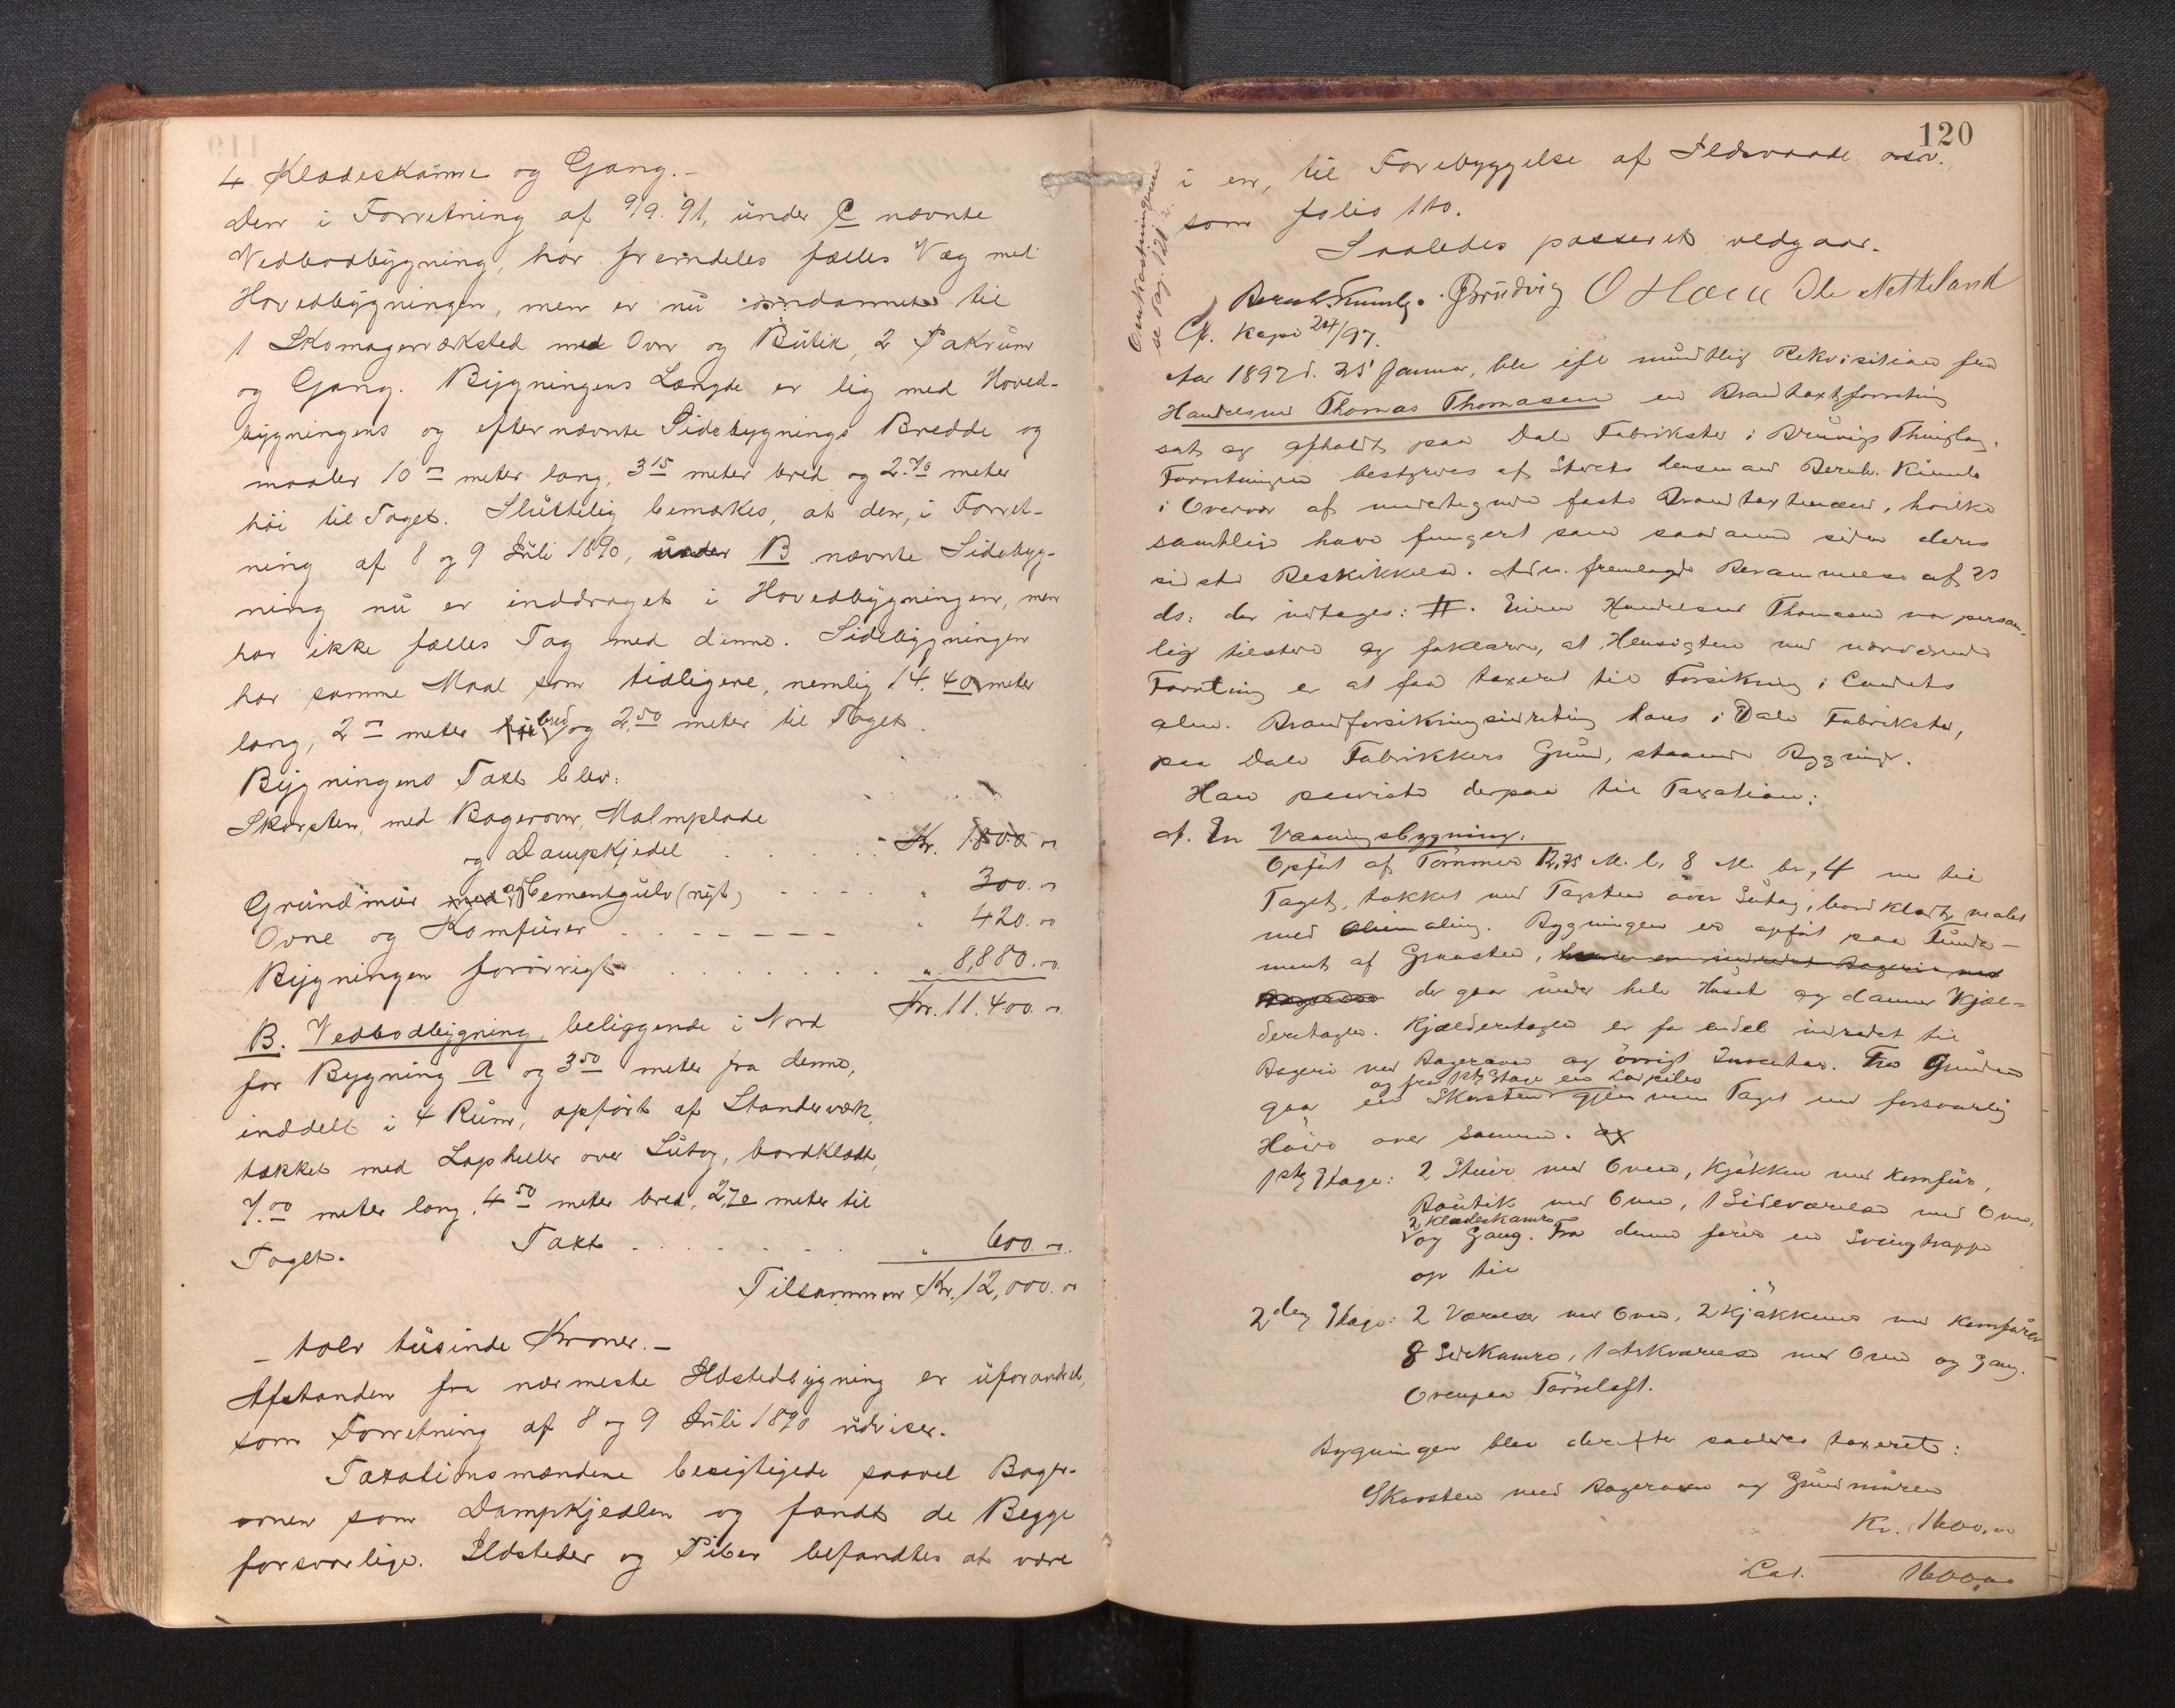 4 Klædeskamre og Gang.-
Den i Forretning af 9/9. 91, under C nævnte
Vedbodbygning, har fremdeles fælles Væg med
Hovedbygningen, men er nu omdannet til
1 Skomagerværksted med Ovn og Butik, 2 Pakrum
og Gang. Bygningens Længde er lig med Hoved-
bygningens og efternævnte Sidebygnings Bredde og
maaler 10 00 meter lang, 3 15 meter bred og 2.70 meter
høi til Taget. Sluttelig bemærkes, at den, i Forret-
ning af 8 og 9 Juli 1890, under B nævnte Sidebyg-
ning nu er inddraget i Hovedbygningen, men
har ikke fælles Tag med denne. Sidebygningen
har samme Maal som tidligere, nemlig 14.40 meter
lang, 2 00 meter bred og 2.50 meter til Taget.
Bygningens Taxt blev:
Skorsten, med Bagerovn, Malmplade
og Dampkjedel . . . . . Kr. 1800.00
Grundmur og Cementgulv (nyt) - - - - " 300.00
Ovne og Komfurer - - - - - - - " 420.00
Bygningen forøvrigt . . . . . . . " 8,880.00
Kr. 11.400.00
B. Vedbodbygning, beliggende i Nord
for Bygning A og 3 50 meter fra denne,
inddelt i 4 Rum, opført af Standerværk,
tækket med Lapheller over Sutag, bordklædt,
7.00 meter lang, 4 50 meter bred, 2,70 meter til
Taget. Taxt . . . . . . . " 600.00
Tilsammen Kr. 12,000.00
- tolv tusinde Kroner.-
Afstanden fra nærmeste Ildstedbygning er uforandret,
som Forretning af 8 og 9 Juli 1890 udviser.
Taxationsmændene besigtigede saavel Bager-
ovnen som Dampkjedlen og fandt de Begge
forsvarlige. Ildsteder og Piber befandtes at være
120
i en, til Forebyggelse af Ildsvaade osv.
som folio 110.
Saaledes passeret vedgaar.
Bernh. Kumle. Brudvig O Hæu Ole Netteland
Omkostningerne
se pag. 121 2.
Cf. Kopi 24/97.
Aar 1897 d. 25 Januar, blev efter mundtlig Rekvisition fra
Handelsmd Thomas Thomasen en Brandtaxtforretning
sat og afholdt paa Dale Fabriksted i Bruvigs Thinglag.
Forretningen bestyredes af Stedets Lensmand Bernh. Kumle
i Overvær af undertegnede faste Brandtaxtmænd, hvilke
samtlige have fungert som saadanne siden deres
sidste Beskikkelse. Adm. fremlagde Berammelse af 23
ds: der indtages: #. Eieren Handelsmd Thomasen var person-
lig tilstede og forklarer, at Hensigten med nærværende
Forretning er at faa taxeret til Forsikring i Landets
alm. Brandforsikringsindretning hans i Dale Fabriksted,
paa Dale Fabrikkers Grund, staaende Bygninger.
Han paaviste derpaa til Taxation:
A. En Vaaningsbygning:
Opført af Tømmer 12,75 M. l, 8 M. br, 4 m til
Taget, tækket med Tagsten over Sutag, bordklædt, malet
med Oliemaling. Bygningen er opført paa Funda-
ment af Graasten,
der gaar under hele Huset og danner Kjæl-
deretagen. Kjælderetagen er for endel indredet til
Bageri med Bagerovn og øvrigt Inventar. Fra Grunden
og fra 1ste Etage en Ladpibe
gaar en Skorsten gjennem Taget med forsvarlig
Høide over samme.
1ste Etage: 2 Stuer med Ovne, Kjøkken med Komfur,
Boutik med Ovn, 1 Sideværelse med Ovn,
2 Klædeskamre
og Gang. Fra denne fører en Svingtrappe
op til
2den Etage: 2 Værelser med Ovne, 2 Kjøkkener med Komfurer
8 Sidekamre, 1 Arkværelse med Ovn og Gang.
Ovenpaa Tørreloft.
Bygningen blev derefter saaledes taxeret:
Skorsten med Bagerovn og Grundmuren
Kr. 1600.00
Lat. 1600,00